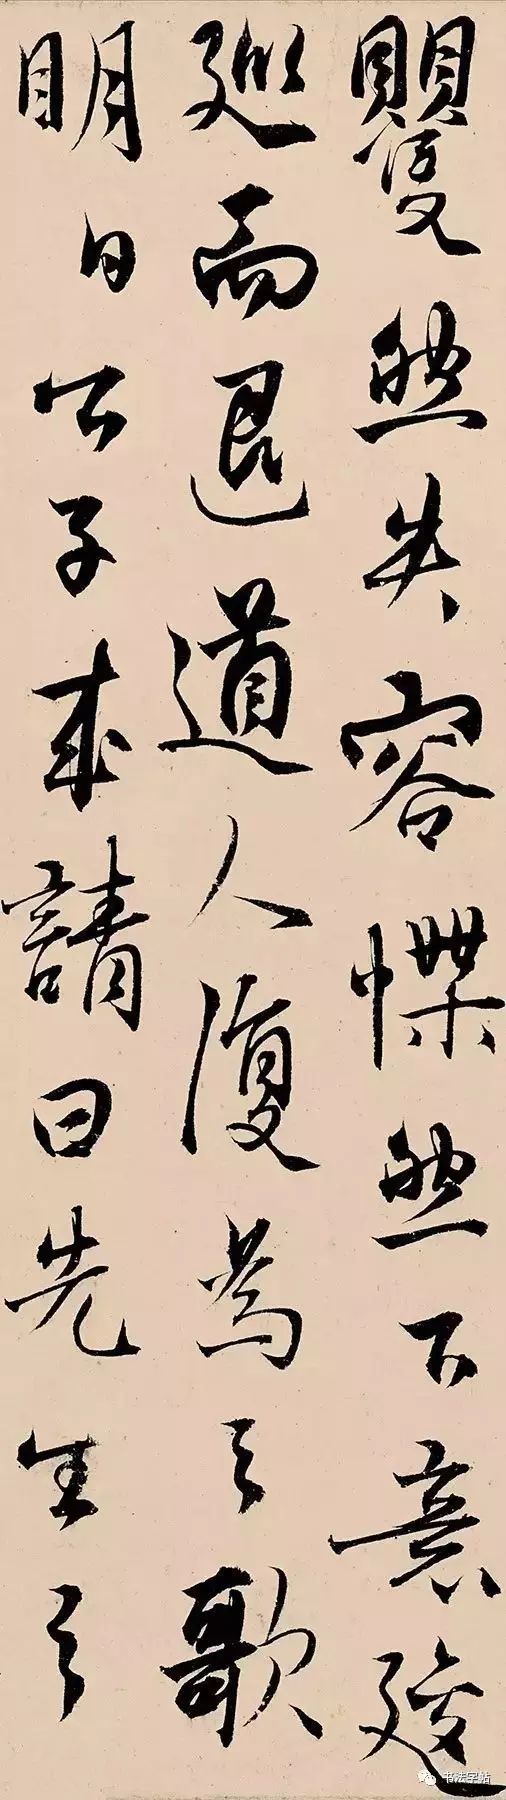 矍然失容惵然下意逡
巡而退道人復為之歌
明日公子來請曰先生之
书法字帖